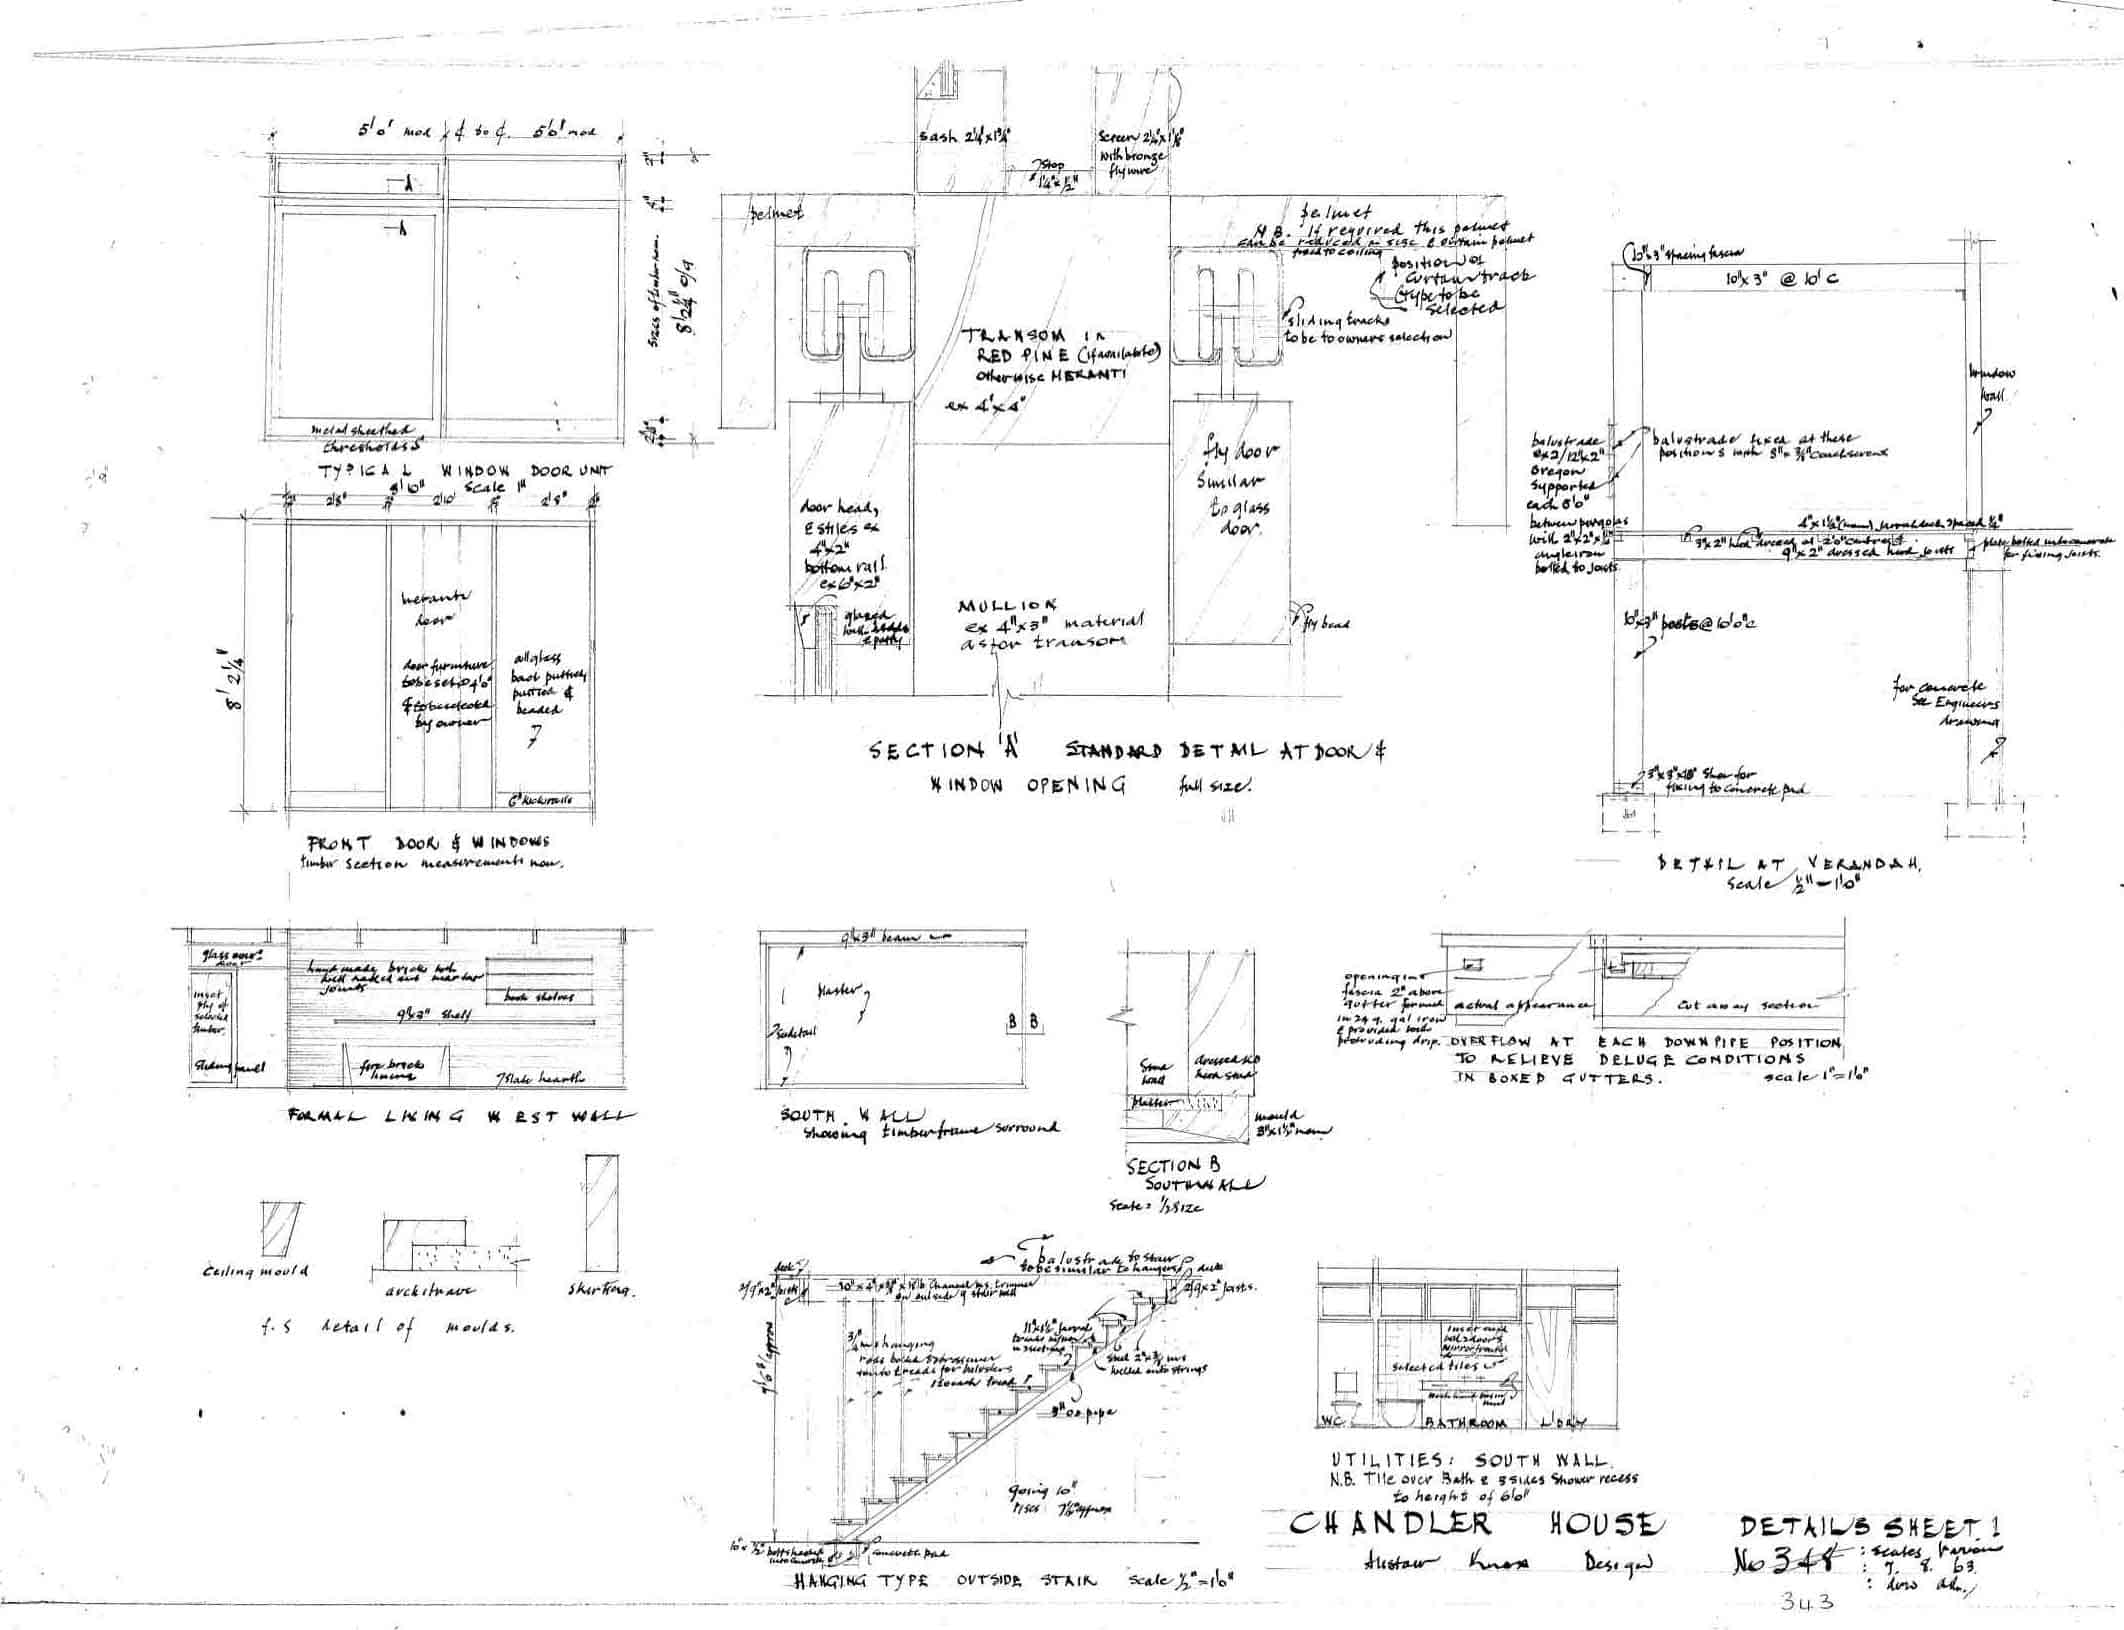 5'0" mod ¢ to ¢. 5'0" mod
A
A
Sizes of timber nom.
8' 2¼" o/a
metal sheathed
thresholds
TYPICAL WINDOW DOOR UNIT
Scale 1"
8'10"
2'8" 2'10" 2'8"
8' 2¼"
meranti
door
door furniture
to be set @ 4'0"
& to be selected
by owner
all glass
back puttied,
puttied &
beaded
6" kickrails
FRONT DOOR & WINDOWS
timber section measurements nom.
sash 2¼"x1¾"
Stop
1¼"x½"
Screen 2¼"x1⅛"
with bronze
flywire
pelmet
pelmet
N.B. If required this pelmet
can be reduced in size & curtain pelmet
fixed to ceiling
position of
curtain track
(type to be
selected
sliding tracks
to be to owners selection
TRANSOM IN
RED PINE (if available)
otherwise MERANTI
ex 4"x4"
door head,
& stiles ex
4"x2"
bottom rail
ex 6"x2"
glazed
with beads
& putty
fly door
similar
to glass
door.
fly bead
MULLION
ex 4"x3" material
as for transom
SECTION 'A' STANDARD DETAIL AT DOOR &
WINDOW OPENING full size.
10"x3" spacing fascia
10"x3" @ 10' C
window
wall
balustrade
ex 2/12"x2"
oregon
supported
each 5'0"
between pergolas
with 2"x2"x¼"
angle iron
bolted to joists
balustrade fixed at these
positions with 3"x⅜" coachscrews
3"x2" hwd dressed at 2'0" centres
9"x2" dressed hwd joists
plate bolted into concrete
for fixing joists.
10"x3" posts @ 10'0" C
for concrete
see Engineers
drawings
3"x3"x18" shoe for
fixing to concrete pad
DETAIL AT VERANDAH.
Scale ½" – 1'0"
glass over
door
inset
ply of
selected
timber.
sliding panel
hand made bricks with
well raked out mortar
joints
book shelves
9"x3" shelf
fire brick
lining
slate hearth
FORMAL LIVING WEST WALL
9"x3" beam
Plaster
B B
SOUTH WALL
showing timber frame surround
Stone
wall
dressed
hwd stud
plaster
mould
3"x1½" nom
SECTION B
SOUTH WALL
Scale: ½ size
opening in
fascia 2" above
gutter formed
in 24 g. gal iron
& provided with
protruding drip.
actual appearance
cut away section
OVERFLOW AT EACH DOWNPIPE POSITION
TO RELIEVE DELUGE CONDITIONS
IN BOXED GUTTERS. scale 1"=1'0"
Ceiling mould
architrave
skirting.
f.s detail of moulds.
balustrade to stair
to be similar to hangers
deck
deck
2/9"x2" joists
2/9x2" joists.
on outside of stair well
9'6⅜" approx
¾" ms hanging
rods bolted to trimmer
& treads for balusters
1 to each tread
steel 2"x⅜ ms
welded onto strings
3" OD pipe
going 10"
rises 7½" approx
concrete pad
HANGING TYPE OUTSIDE STAIR scale ½"=1'0"
selected tiles
WC. BATHROOM L'DRY
UTILITIES: SOUTH WALL.
N.B. Tile over Bath & 3 sides Shower recess
to height of 6'0"
CHANDLER HOUSE
Alistair Knox Design
DETAILS SHEET 1
No 348 : scales various
: 7. 8. 63.
343